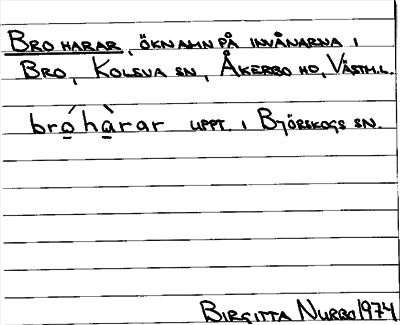 BRO HARAR, ÖKNAMN PÅ INVÅNARNA I
BRO, KOLSVA SN, ÅKERBO HD, VÄSTM.L.
bró hàrar UPPT. I BJÖRSKOGS SN.
BIRGITTA NURBO 1974